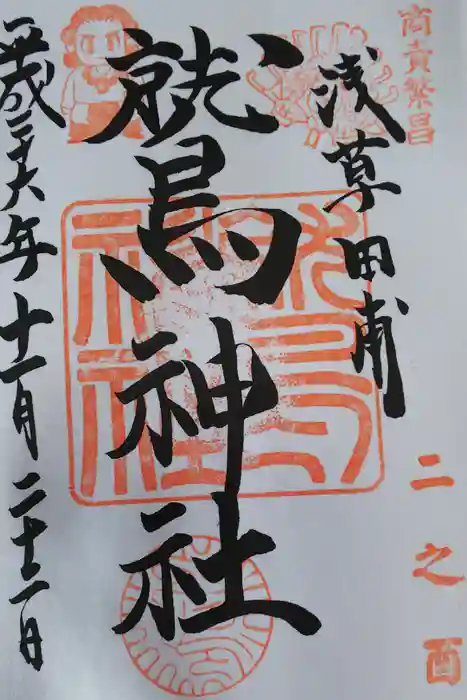 商賣繁昌
二之酉
浅草田甫
鷲神社
鷲神社
平成二十六年十一月二十二日